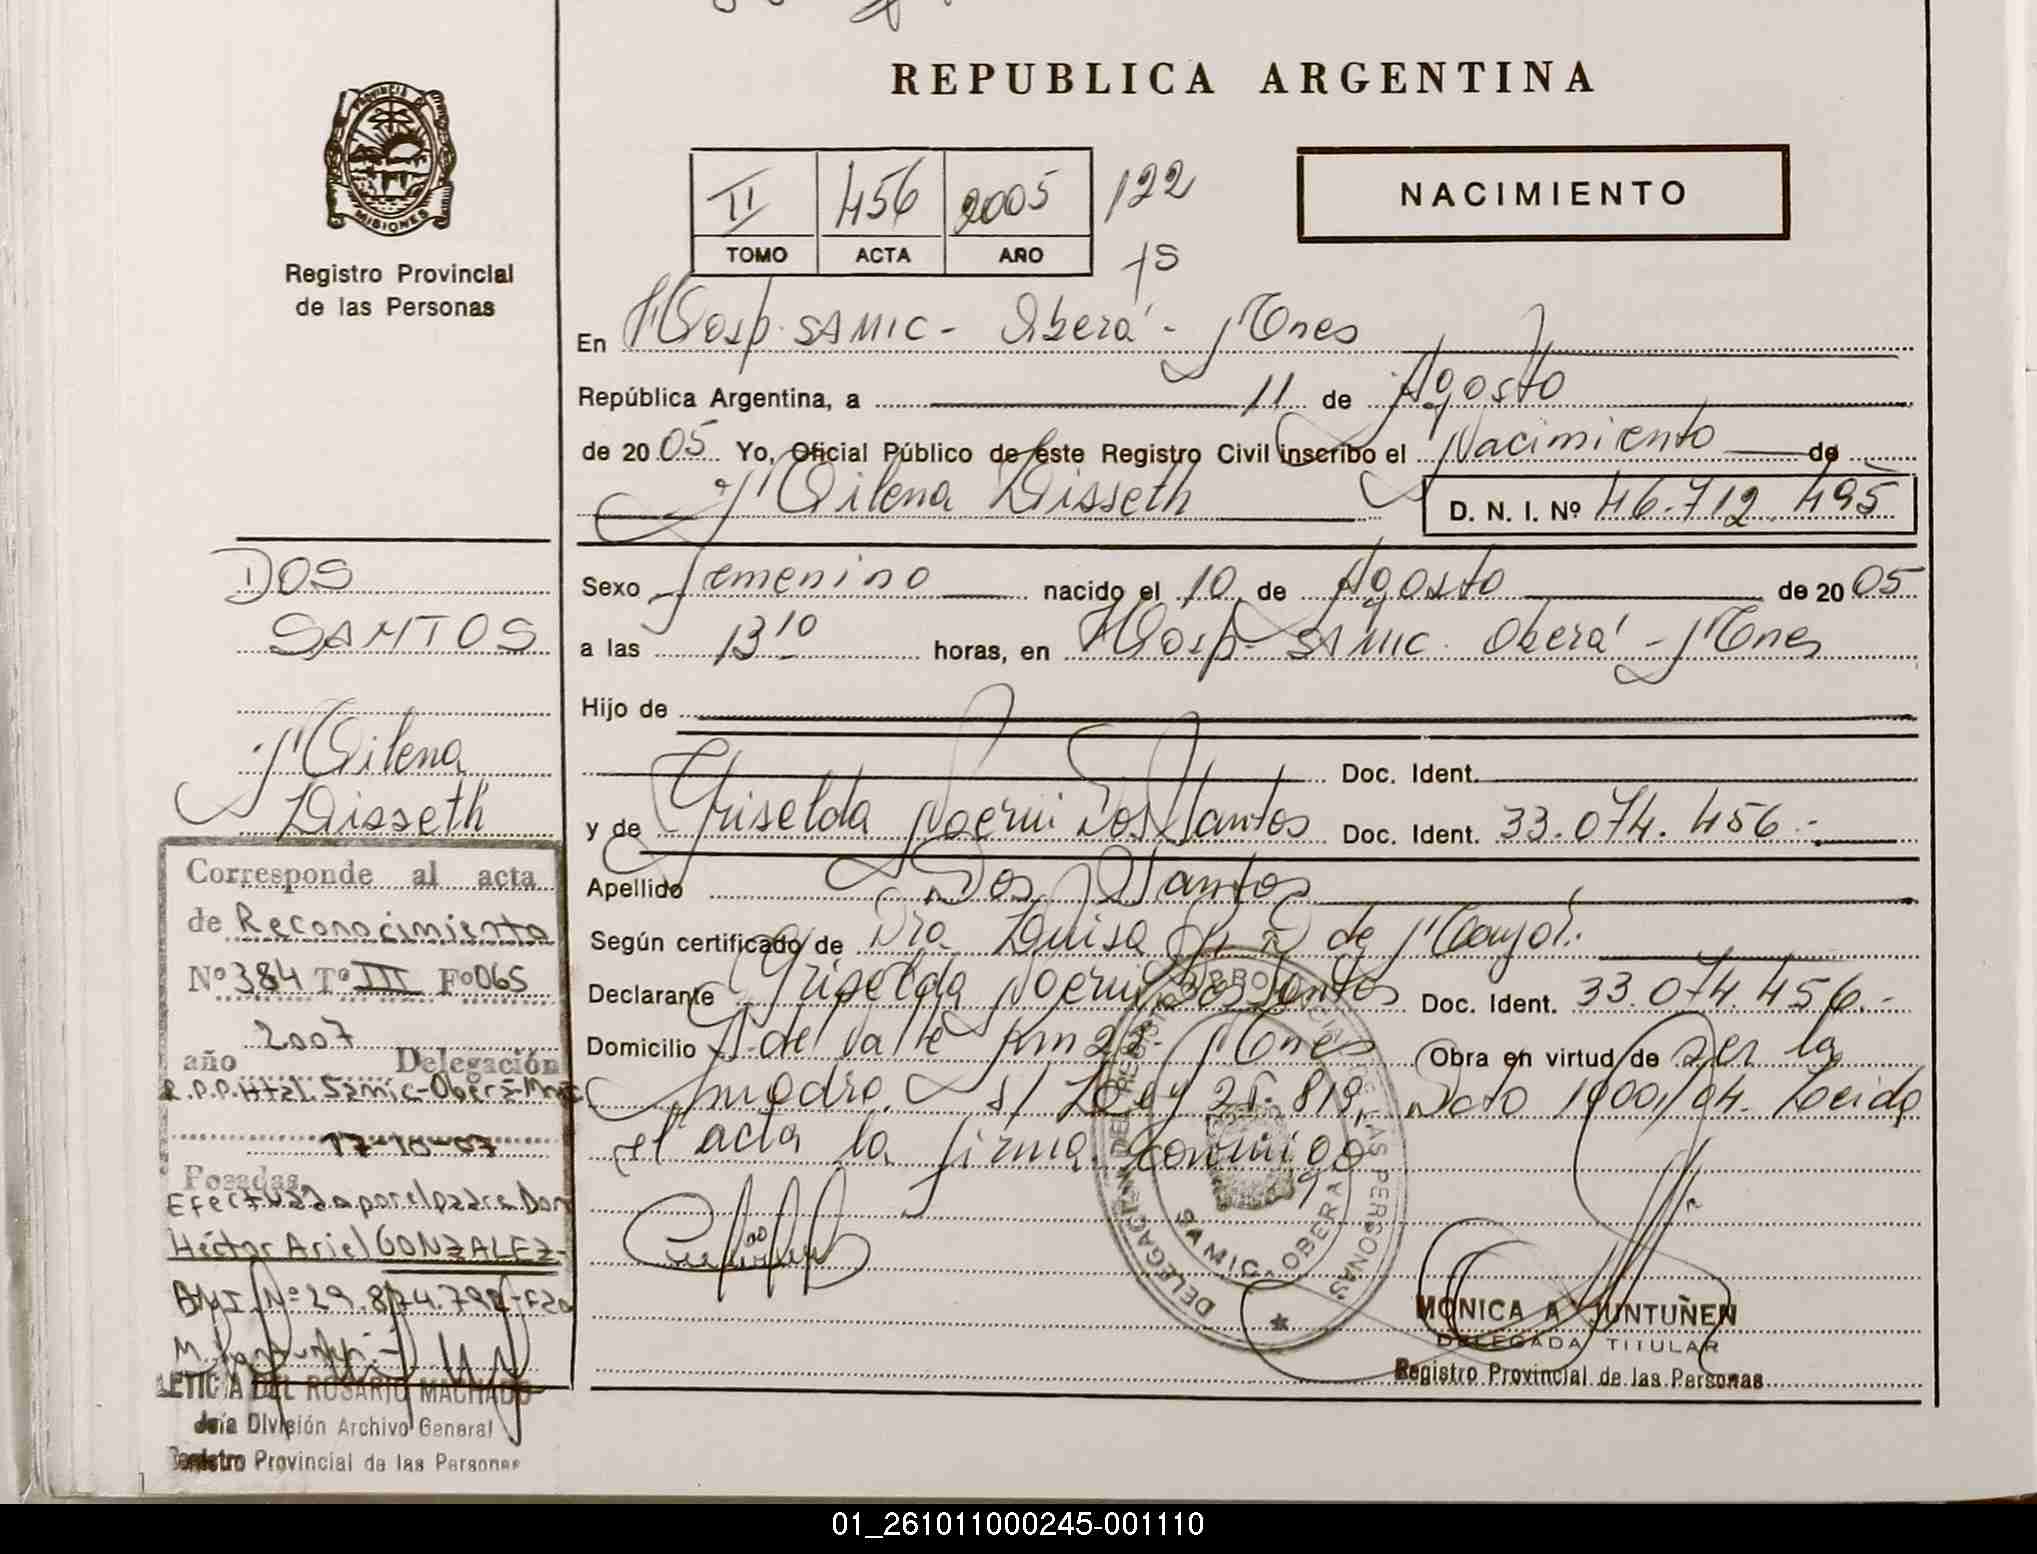 REPUBLICA ARGENTINA
PROVINCIA DE
MISIONES
Registro Provincial
de las Personas
II 456 2005 122
TOMO ACTA AÑO
NACIMIENTO
En Hosp. SAMIC - Oberá - Mnes
República Argentina, a 11 de Agosto
de 2005 Yo, Oficial Público de este Registro Civil inscribo el Nacimiento de
Milena Lisseth D. N. I. Nº 46.712.495
Sexo femenino nacido el 10 de Agosto de 2005
a las 13 10 horas, en Hosp. SAMIC. Oberá - Mnes
Hijo de
Doc. Ident.
y de Griselda Noemi Dos Santos Doc. Ident. 33.074.456.-
Apellido Dos Santos
Según certificado de Dra. Luisa de
Declarante Griselda Noemi Dos Santos Doc. Ident. 33.074.456.-
Domicilio A. del Valle Km 28- Mnes Obra en virtud de ser la
madre. s/ Ley 25.819, Dcto 1900/04. Leída
el acta la firma conmigo
DELEGACION DEL REGISTRO PROVINCIAL DE LAS PERSONAS
SAMIC - OBERA
MONICA A. JUNTUÑEN
DELEGADA TITULAR
Registro Provincial de las Personas
DOS
SANTOS
Milena
Lisseth
Corresponde al acta
de Reconocimiento
Nº 384 Tº III Fº 065
2007
año Delegación
R.P.P. Htal. Samic-Oberá-Mnes
17-10-07
Posadas
Efectuada por el padre Don
Héctor Ariel GONZALEZ-
DNI. Nº 29.874.792-
LETICIA DEL ROSARIO MACHADO
Jefa División Archivo General
Registro Provincial de las Personas
01_261011000245-001110